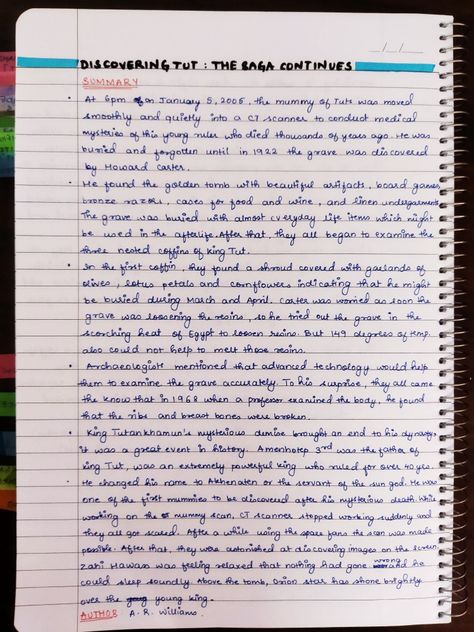 DISCOVERING TUT : THE SAGA CONTINUES
SUMMARY
• At 6pm on January 5, 2005, the mummy of Tuts was moved
smoothly and quietly into a CT scanner to conduct medical
mysteries of this young ruler who died thousands of years ago. He was
buried and forgotten until in 1922 the grave was discovered
by Howard Carter.
• He found the golden tomb with beautiful artifacts, board games
bronze razors, cases for food and wine, and linen undergarments.
The grave was buried with almost everyday life items which might
be used in the afterlife. After that, they all began to examine the
three nested coffins of King Tut.
• In the first coffin, they found a shroud covered with garlands of
olives, lotus petals and cornflowers indicating that he might
be buried during March and April. Carter was worried as soon the
grave was loosening the resins, so he tried out the grave in the
scorching heat of Egypt to loosen resins. But 149 degrees of temp.
also could not help to melt those resins.
• Archaeologist mentioned that advanced technology would help
them to examine the grave accurately. To his surprise, they all came
the know that in 1968 when a professor examined the body, he found
that the ribs and breast bones were broken.
• King Tutankhamun's mysterious demise brought an end to his dynasty,
it was a great event in history. Amenhotep 3rd was the father of
King Tut, was an extremely powerful king who ruled for over 40 yrs.
He changed his name to Akhenaten or the servant of the sun god. He was
one of the first mummies to be discovered after his mysterious death. While
working on the mummy scan, CT scanner stopped working suddenly and
they all got scared. After a while using the spare fans the scan was made
possible. After that, they were astonished at discovering images on the screen.
Zahi Hawass was feeling relaxed that nothing had gone wrong and he
could sleep soundly. Above the tomb, Orion star has shone brightly
over the young king.
AUTHOR A. R. Williams.